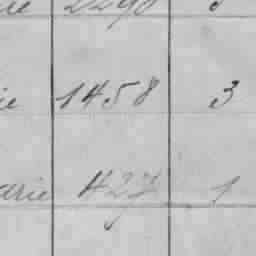 2290
ie 1458 3
arie 427 1